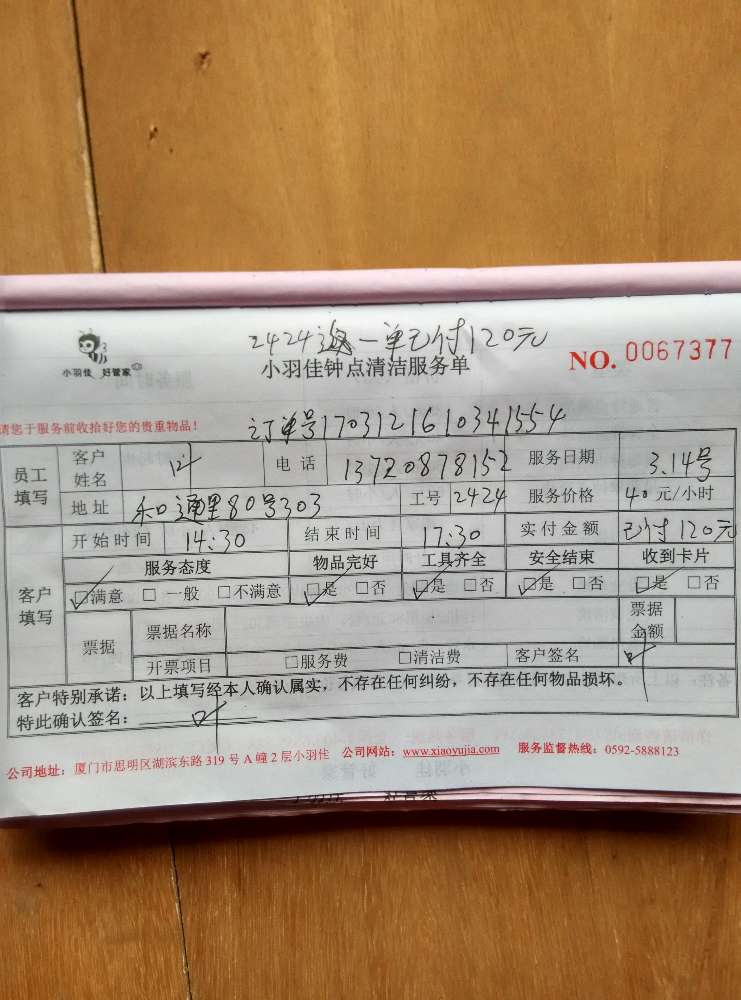 2424 一单已付120元
小羽佳 好管家
小羽佳钟点清洁服务单
NO. 0067377
请您于服务前收拾好您的贵重物品!
订单号1703121610341554
员工填写 客户姓名 叶 电话 13720878152 服务日期 3.14号
地址 和通里80号303 工号 2424 服务价格 40元/小时
客户填写 开始时间 14:30 结束时间 17:30 实付金额 已付120元
服务态度 物品完好 工具齐全 安全结束 收到卡片
☑满意 □一般 □不满意 ☑是 □否 ☑是 □否 ☑是 □否 ☑是 □否
票据 票据名称 票据金额
开票项目 □服务费 □清洁费 客户签名 叶
客户特别承诺:以上填写经本人确认属实,不存在任何纠纷,不存在任何物品损坏。
特此确认签名: 叶
公司地址:厦门市思明区湖滨东路 319 号 A 幢 2 层小羽佳 公司网站:www.xiaoyujia.com 服务监督热线:0592-5888123